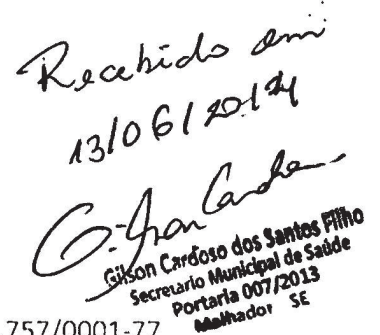 Recebido em
13/06/2014
Gilson Cardoso
Gilson Cardoso dos Santos Filho
Secretario Municipal de Saúde
Portaria 007/2013
Malhador SE
757/0001-77